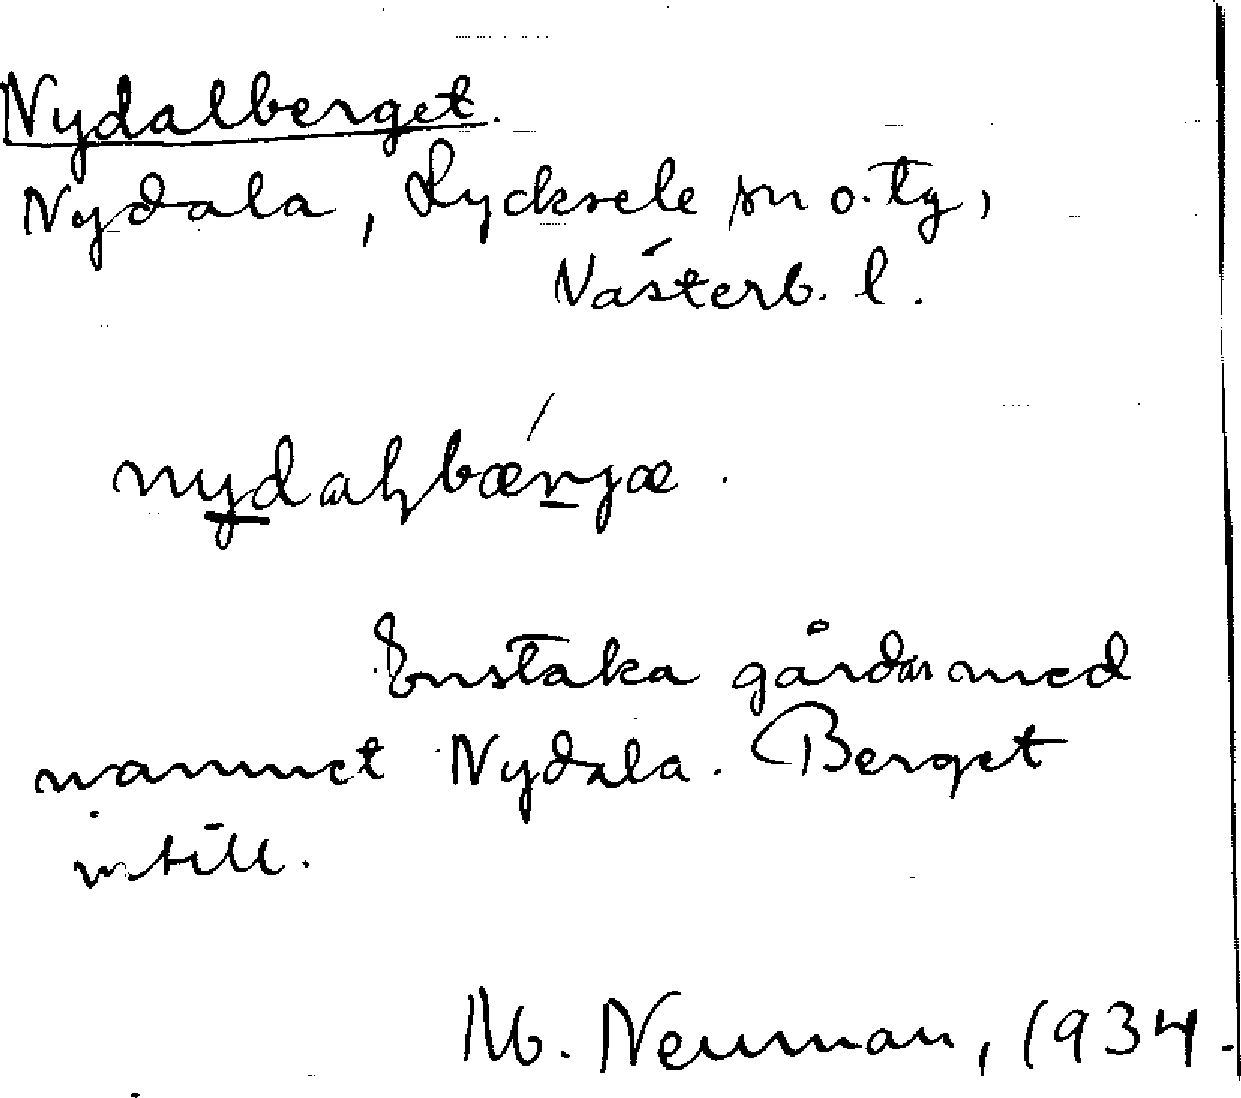 Nydalberget.
Nydala, Lycksele sn o. tg,
Västerb. l.
Enstaka gårdar med
namnet Nydala. Berget
intill.
M. Neuman, 1934.